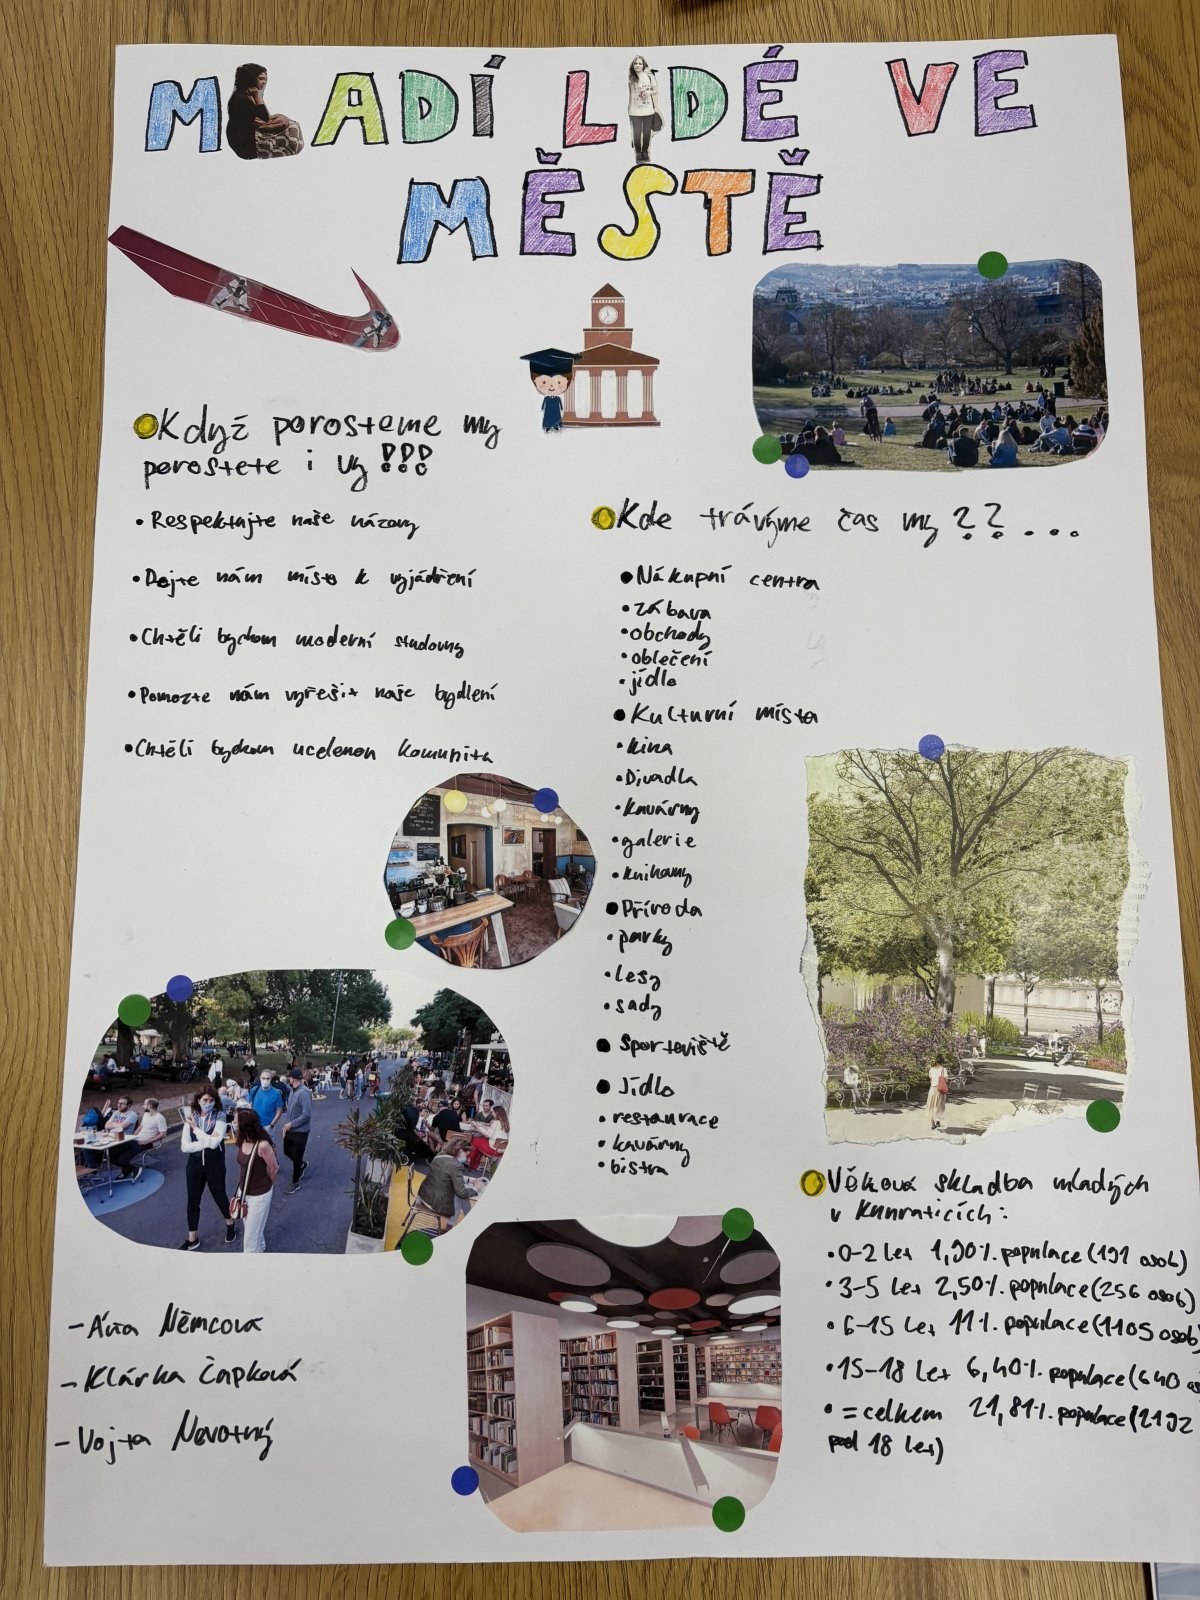 MLADÍ LIDÉ VE
MĚSTĚ
Když porosteme my
porostete i vy !!!
• Respektujte naše názory
• Dejte nám místo k vyjádření
• Chtěli bychom moderní studovny
• Pomozte nám vyřešit naše bydlení
• Chtěli bychom ucelenou komunitu
Kde trávíme čas my ?? ...
• Nákupní centra
• zábava
• obchody
• oblečení
• jídlo
• Kulturní místa
• kina
• Divadla
• kavárny
• galerie
• knihovny
• Příroda
• parky
• lesy
• sady
• Sportoviště
• Jídlo
• restaurace
• kavárny
• bistra
Věková skladba mladých
v Kunraticích:
• 0-2 let 1,90%. populace (191 osob)
• 3-5 let 2,50%. populace (256 osob)
• 6-15 let 11%. populace (1105 osob)
• 15-18 let 6,40%. populace (640 os
• = celkem 21,81%. populace (2192
pod 18 let)
- Klárka Čapková
- Vojta Novotný